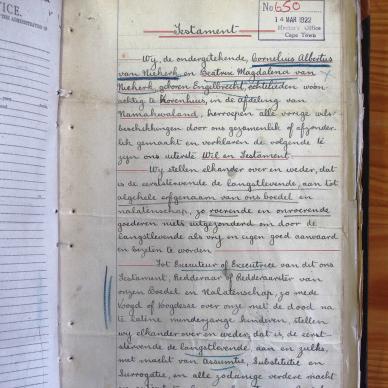 ICE.
No 650
14 MAR 1922
Master's Office
Cape Town
Testament.
Wij, de ondergetekende, Cornelius Albertus
van Niekerk en Beatrix Magdalena van
Niekerk, geboren Engelbrecht, echtelieden woon-
achtig te Korenhuis, in de afdeling van
Namakwaland, herroepen alle vorige wils-
beschikkingen door ons gezamenlik of afzonder-
lik gemaakt en verklaren de volgende te
zijn ons uiterste Wil en Testament.
Wij stellen elkander over en weder, dat
is de eerststervende de langstlevende, aan tot
algehele erfgenaam van ons boedel en
nalatenschap, zo roerende en onroerende
goederen niets uitgezonderd om door de
langstlevende als vrij en eigen goed aanvaard
en bezeten te worden.
Tot Executeur of Executrice van dit ons
Testament, Redderaar of Redderaarster van
onzen Boedel en Nalatenschap, zo mede
Voogd of Voogdesse over onze met de dood na
te laten minderjarige kinderen, stellen
wij elkander over en weder, dat is de eerst-
stervende de langstlevende, aan en zulks
met macht van Assumtie, Substitutie en
Surrogatie, en alle zodanige verdere macht